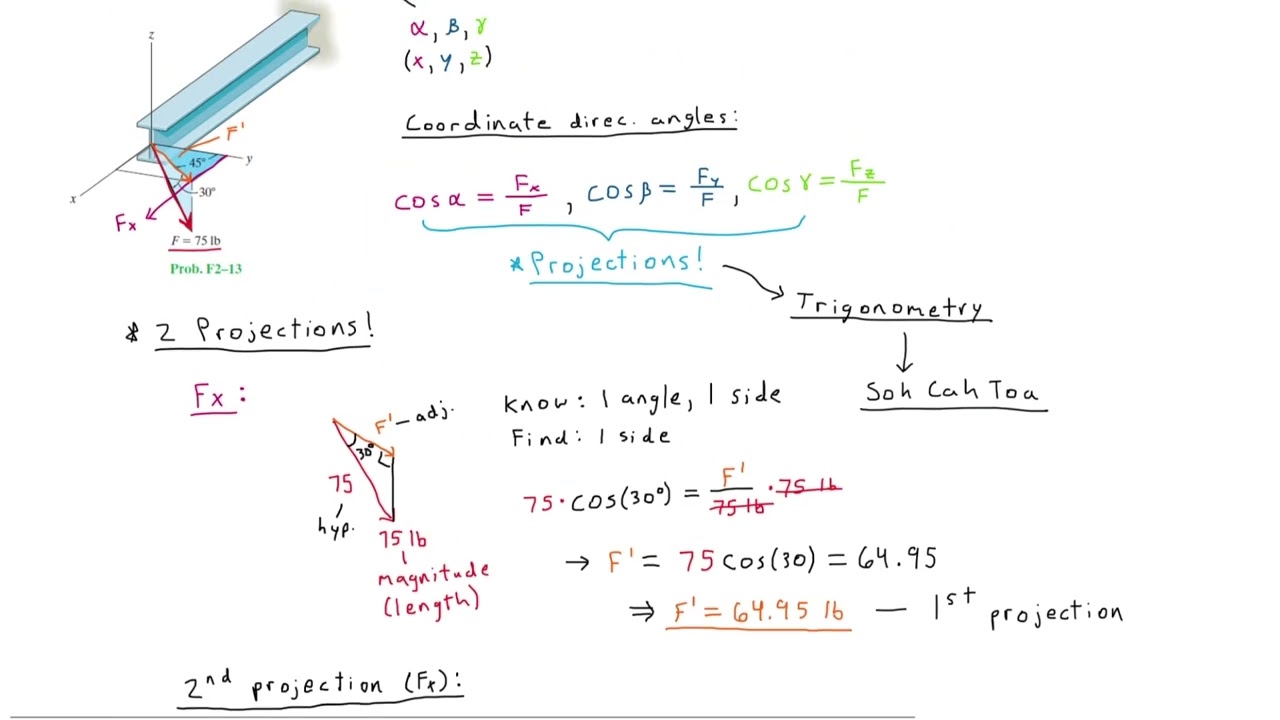 α, β, γ
(x, y, z)
z
F'
45°
y
30°
x
Fx
F = 75 lb
Prob. F2–13
Coordinate direc. angles:
cos α = Fx/F , cos β = Fy/F , cos γ = Fz/F
* Projections!
Trigonometry
Soh Cah Toa
* 2 Projections!
Fx :
F' – adj.
30°
75
hyp.
75 lb
magnitude
(length)
Know: 1 angle, 1 side
Find: 1 side
75 · cos(30°) = F'/75 lb · 75 lb
→ F' = 75 cos(30) = 64.95
⇒ F' = 64.95 lb — 1st projection
2nd projection (Fx):